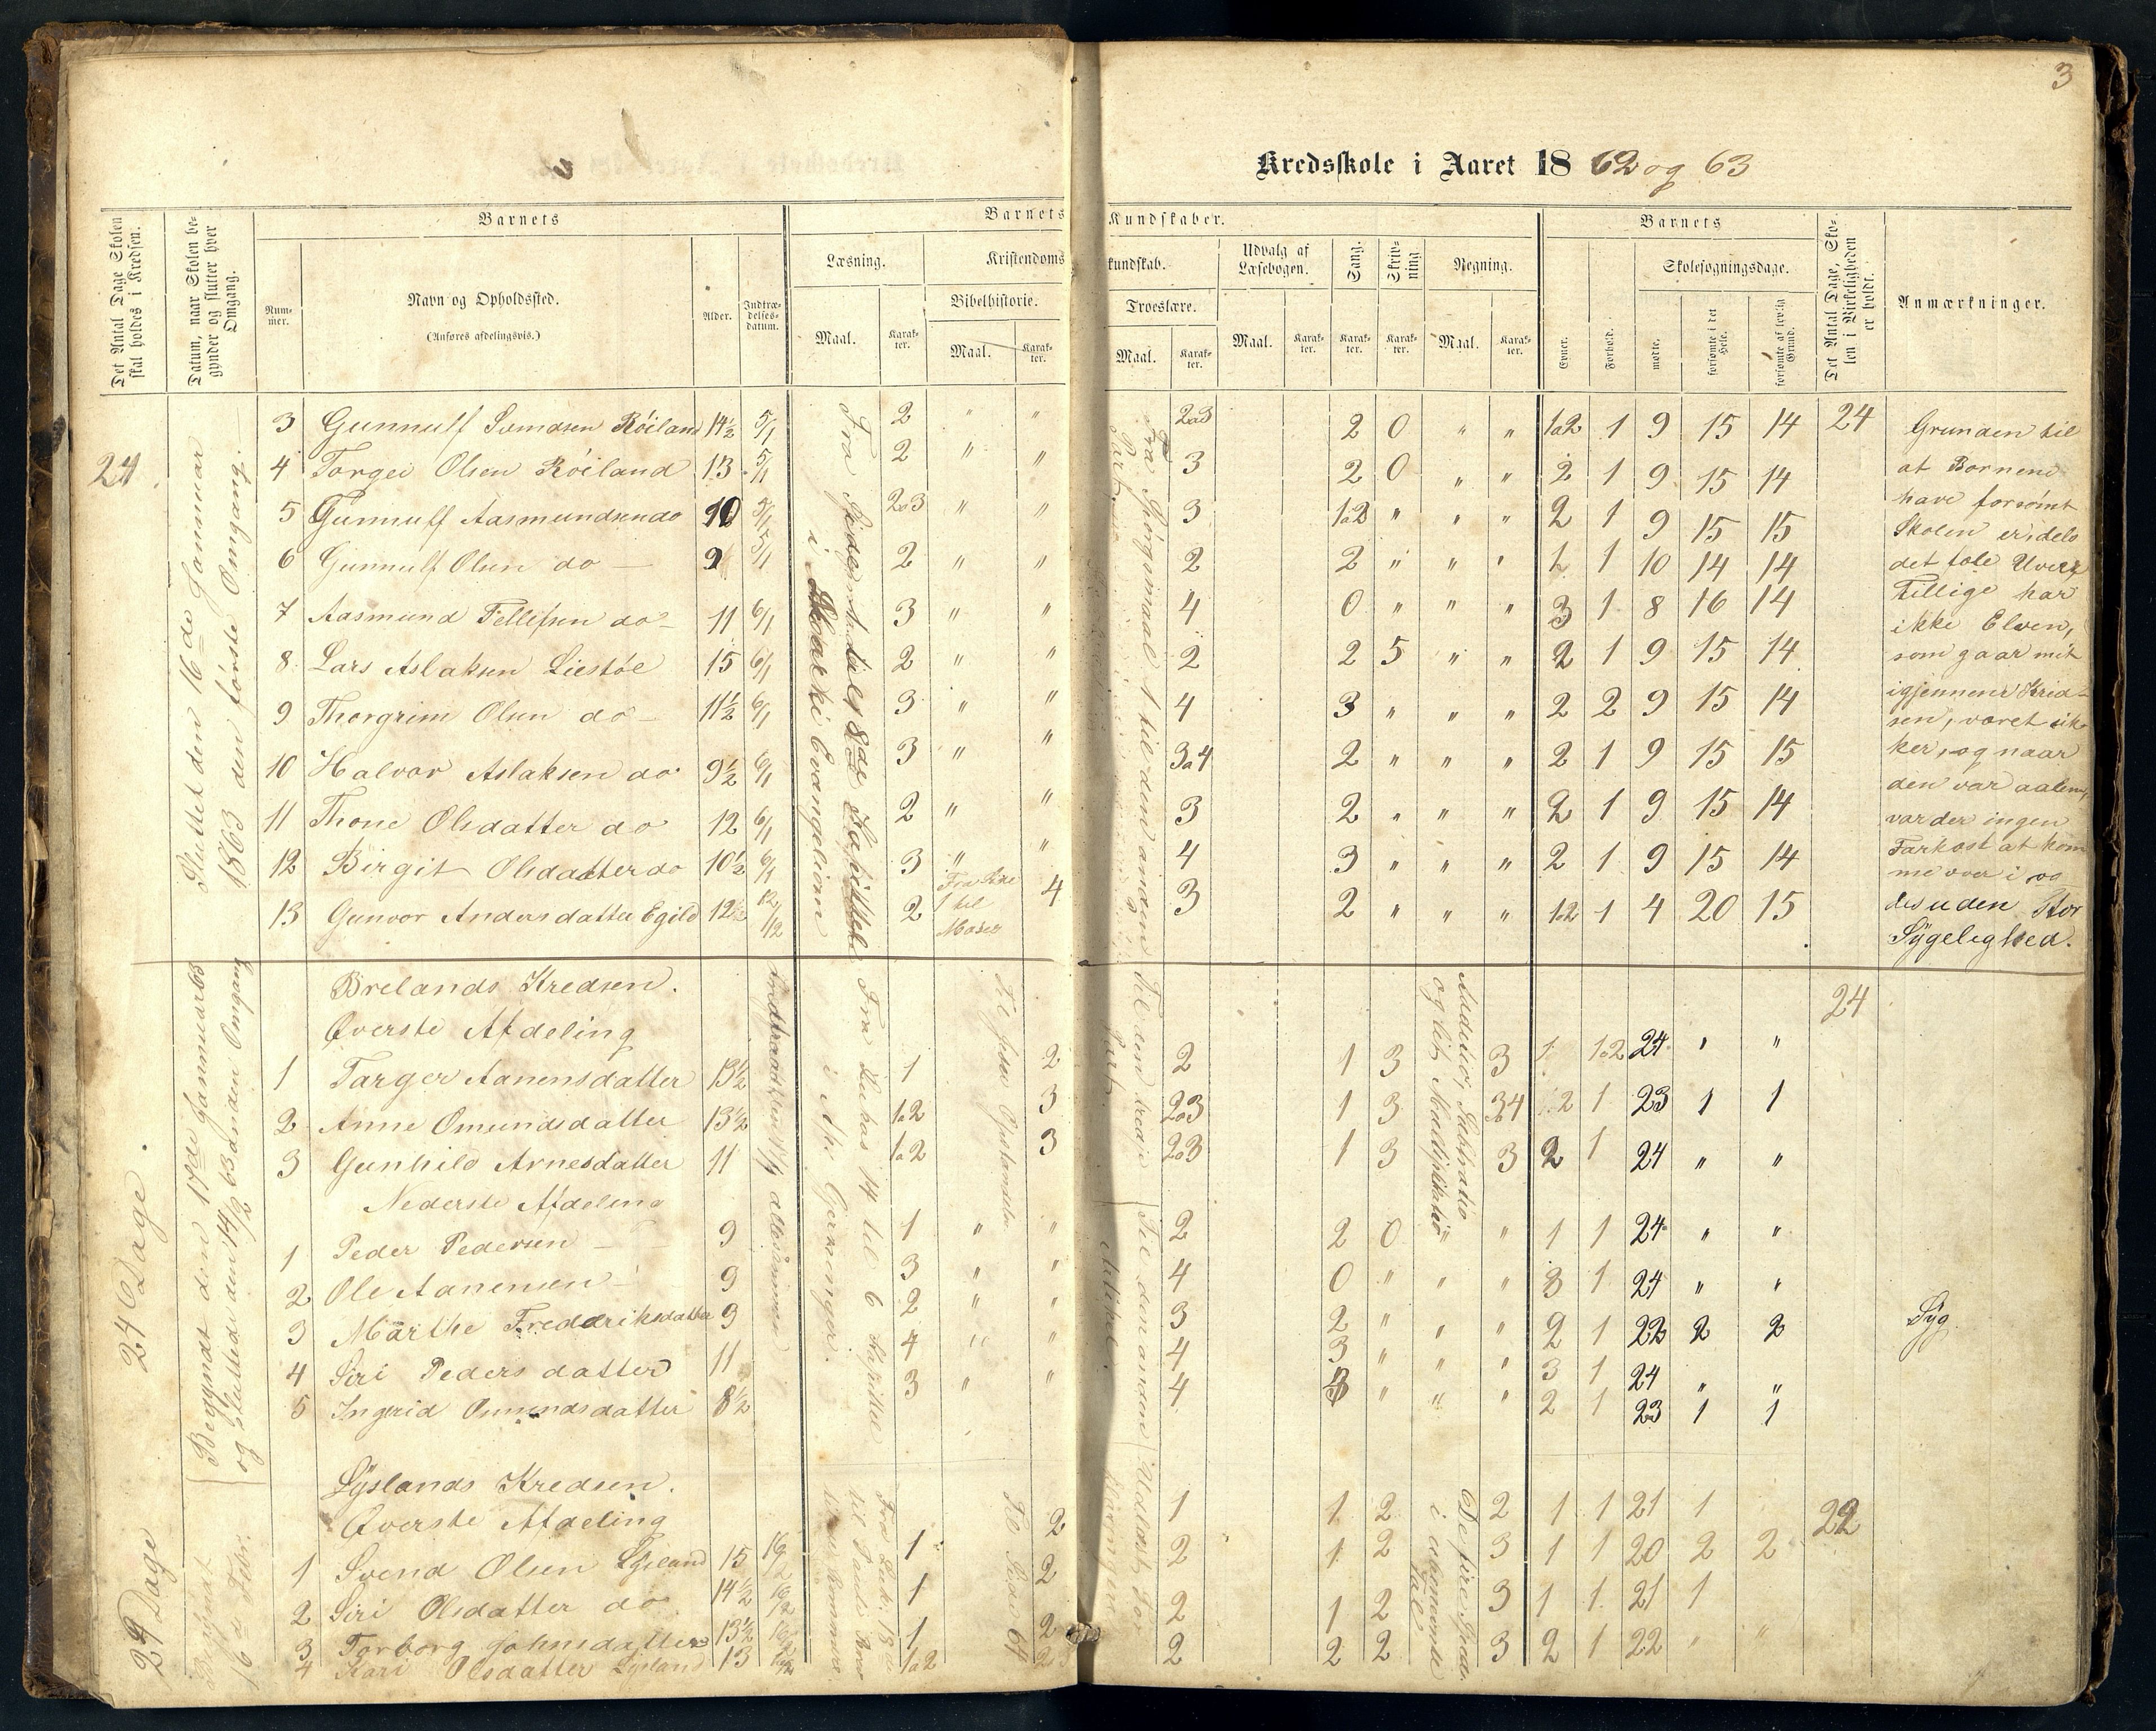 3
Kredsskole i Aaret 1862 og 63
Det Antal Dage Skolen skal holdes i Kredsen.
Datum, naar Skolen begynder og slutter hver Omgang.
Barnets
Nummer.
Navn og Opholdssted.
(Anføres afdelingsvis.)
Alder.
Indtrædelsesdatum.
Barnets Kundskaber.
Læsning.
Maal.
Karakter.
Kristendomskundskab.
Bibelhistorie.
Maal.
Karakter.
Troeslære.
Maal.
Karakter.
Udvalg af Læsebogen.
Maal.
Karakter.
Sang.
Karakter.
Skrivning.
Karakter.
Regning.
Maal.
Karakter.
Barnets
Evner.
Forhold.
Skolesøgningsdage.
mødte.
forsømte i det Hele.
forsømte af lovlig Grund.
Det Antal Dage, Skolen i Virkeligheden er holdt.
Anmærkninger.
24
Sluttet den 16de Januar 1863 den første Omgang.
Fra
8de Kapittel
i Evangeliom
Fra Spørgsmaal 1 til den anden Part
3 Gunnulf Svendsen Røiland 14½ 5/1 2 " " 2a3 2 0 " " 1a2 1 9 15 14 24
4 Torgei Olsen Røiland 13 5/1 2 " " 3 2 0 " " 2 1 9 15 14
5 Gunnulf Aasmundsen do 10 5/1 2a3 " " 3 1a2 " " " 2 1 9 15 15
6 Gunnulf Olsen do 9 5/1 2 " " 2 2 " " " 1 10 14 14
7 Aasmund Tellefsen do 11 6/1 3 " " 4 0 " " " 3 1 8 16 14
8 Lars Aslaksen Liestøl 15 6/1 2 " " 2 2 5 " " 2 1 9 15 14
9 Thorgrim Olsen do 11½ 6/1 3 " " 4 3 " " " 2 2 9 15 14
10 Halvor Aslaksen do 9½ 6/1 3 " " 3a4 2 " " " 2 1 9 15 15
11 Thone Olsdatter do 12 6/1 2 " " 3 2 " " " 2 1 9 15 14
12 Birgit Olsdatter do 10½ 6/1 3 " " 4 3 " " " 2 1 9 15 14
13 Gunvor Andersdatter Egild 12½ 12/12 2 1 til Moses 4 3 2 " " " 1a2 1 4 20 15
Grunden til
at Børnene
have forsømt
Skolen er, dels
det fole Uveir,
Tillige har
ikke Elven,
som gaar mit
igjennem Kred-
sen, været sik-
ker, og naar
den var aaben,
var der ingen
Farkost at kom-
me over i og
des uden Stor
Sygelighed.
24 Dage.
Begynt den 17de Januar 63
og sluttede den 14/2 63 anden Omgang
Brelands Kredsen.
24
Øverste Afdeling
Indtraadte 17/1 allesammen
Fra Lukas 14 til 6 Kapittel
i Ap. Gjerninger.
Til Jesu Opstandelse
Til den tredie Part.
Addetio, Subtratio
og lidt Multiplikatio
1 Targer Aanensdatter 13½ 1 2 2 1 3 3 1 1a2 24 " "
2 Anne Omundsdatter 13½ 1a2 3 2a3 1 3 3a4 2 1 23 1 1
3 Gunhild Arnesdatter 11 1a2 3 2a3 1 3 3 2 1 24 " "
Nederste Afdeling
Til den anden Artikel.
1 Peder Pedersen 9 1 " " 2 2 0 " " 1 1 24 " "
2 Ole Aanensen 9 3 " " 4 0 " " " 3 1 24 " "
3 Marthe Fredderiksdatter 9 2 " " 3 2 " " " 2 1 22 2 2 Syg.
4 Siri Pedersdatter 11 4 " " 4 3 " " " 3 1 24 " "
5 Ingerid Omundsdatter 8½ 3 " " 4 3 " " " 2 1 23 1 1
24 Dage
Begynt 16d Febr.
Lyslands Kredsen.
Øverste Afdeling
Fra Luk. 18
til Pauli
Til
Udlært For
De fire Sped.
i ubenevnte Tal
1 Svend Olsen Lysland 15 16/2 1 2 1 1 2 2 1 1 21 1 22
2 Siri Olsdatter do 14½ 16/2 1 2 2 1 2 3 1 1 20 2 2
3 Torborg Johnsdatter 13½ 1 2 2 1 2 3 1 1 21 1
4 Kari Olsdatter Lysland 13 1a2 2 2 2 2 3 2 1 22 " "